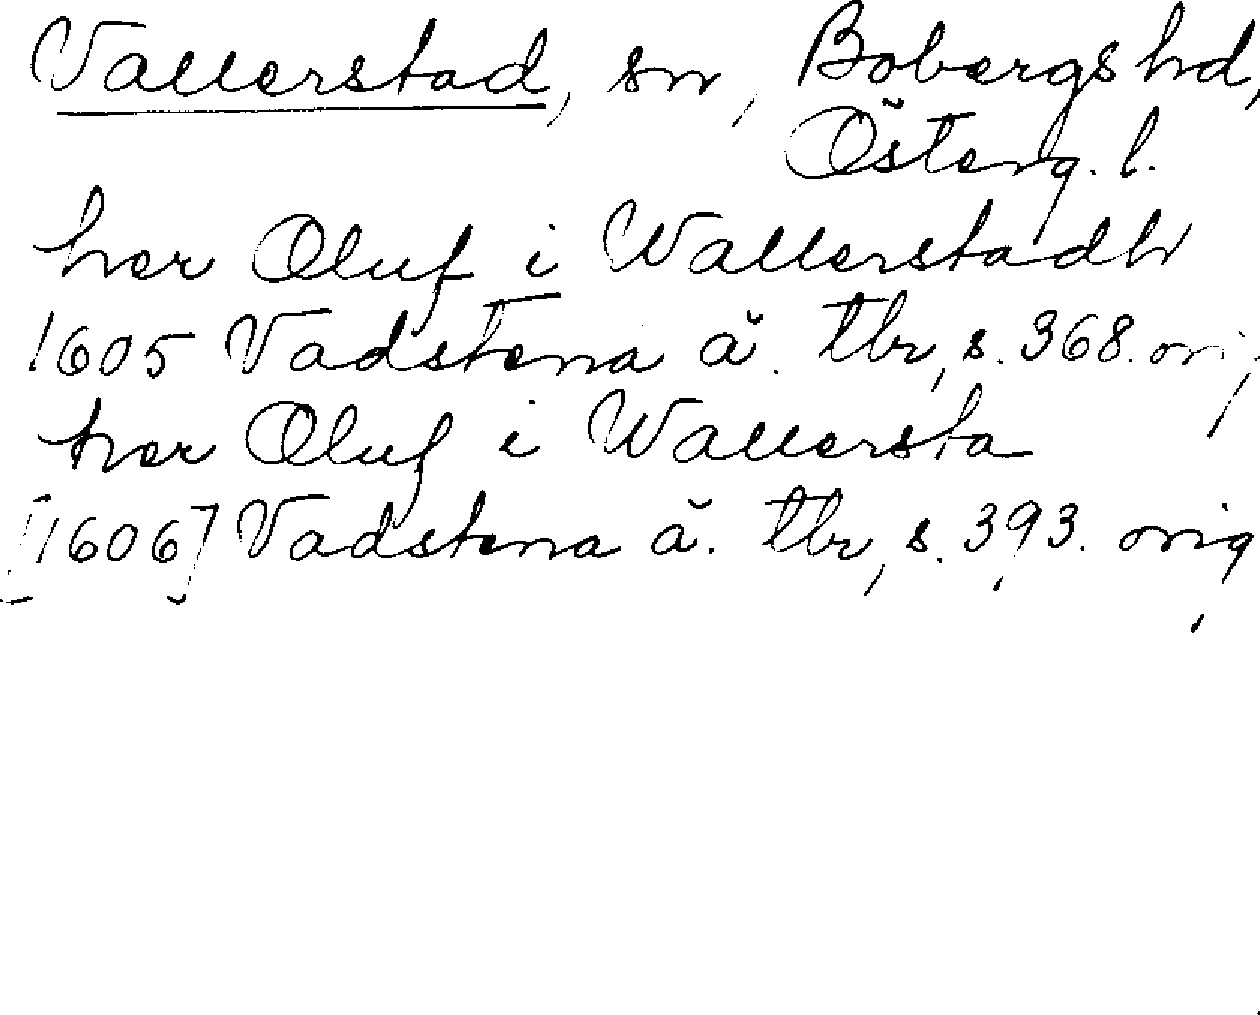 Vallerstad, sn, Bobergs hd,
Österg. l.
her Oluf i Wallerstadh
1605 Vadstena ä. tbr, s. 368. orig.
her Oluf i Wallersta
[1606] Vadstena ä. tbr, s. 393. orig.